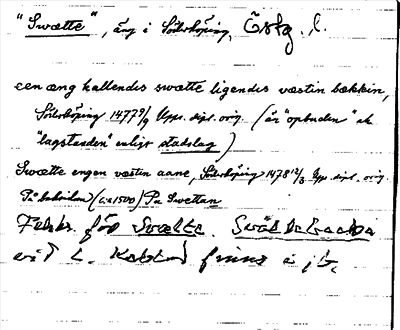 "Swætte", äng i Söderköping, Östg. l.
een æng kallendis swætte ligendis væstin bækkin,
Söderköping 1477 9/9 Upps. dipl. orig. (är "opbuden" ok
"lagstanden" enligt stadslag)
Swætte engen væstin aane, Söderköping 1478 12/3 Upps. dipl. orig.
På baksidan (c. 1500) Pa Swettan
för Swætte.
vid L. finns i